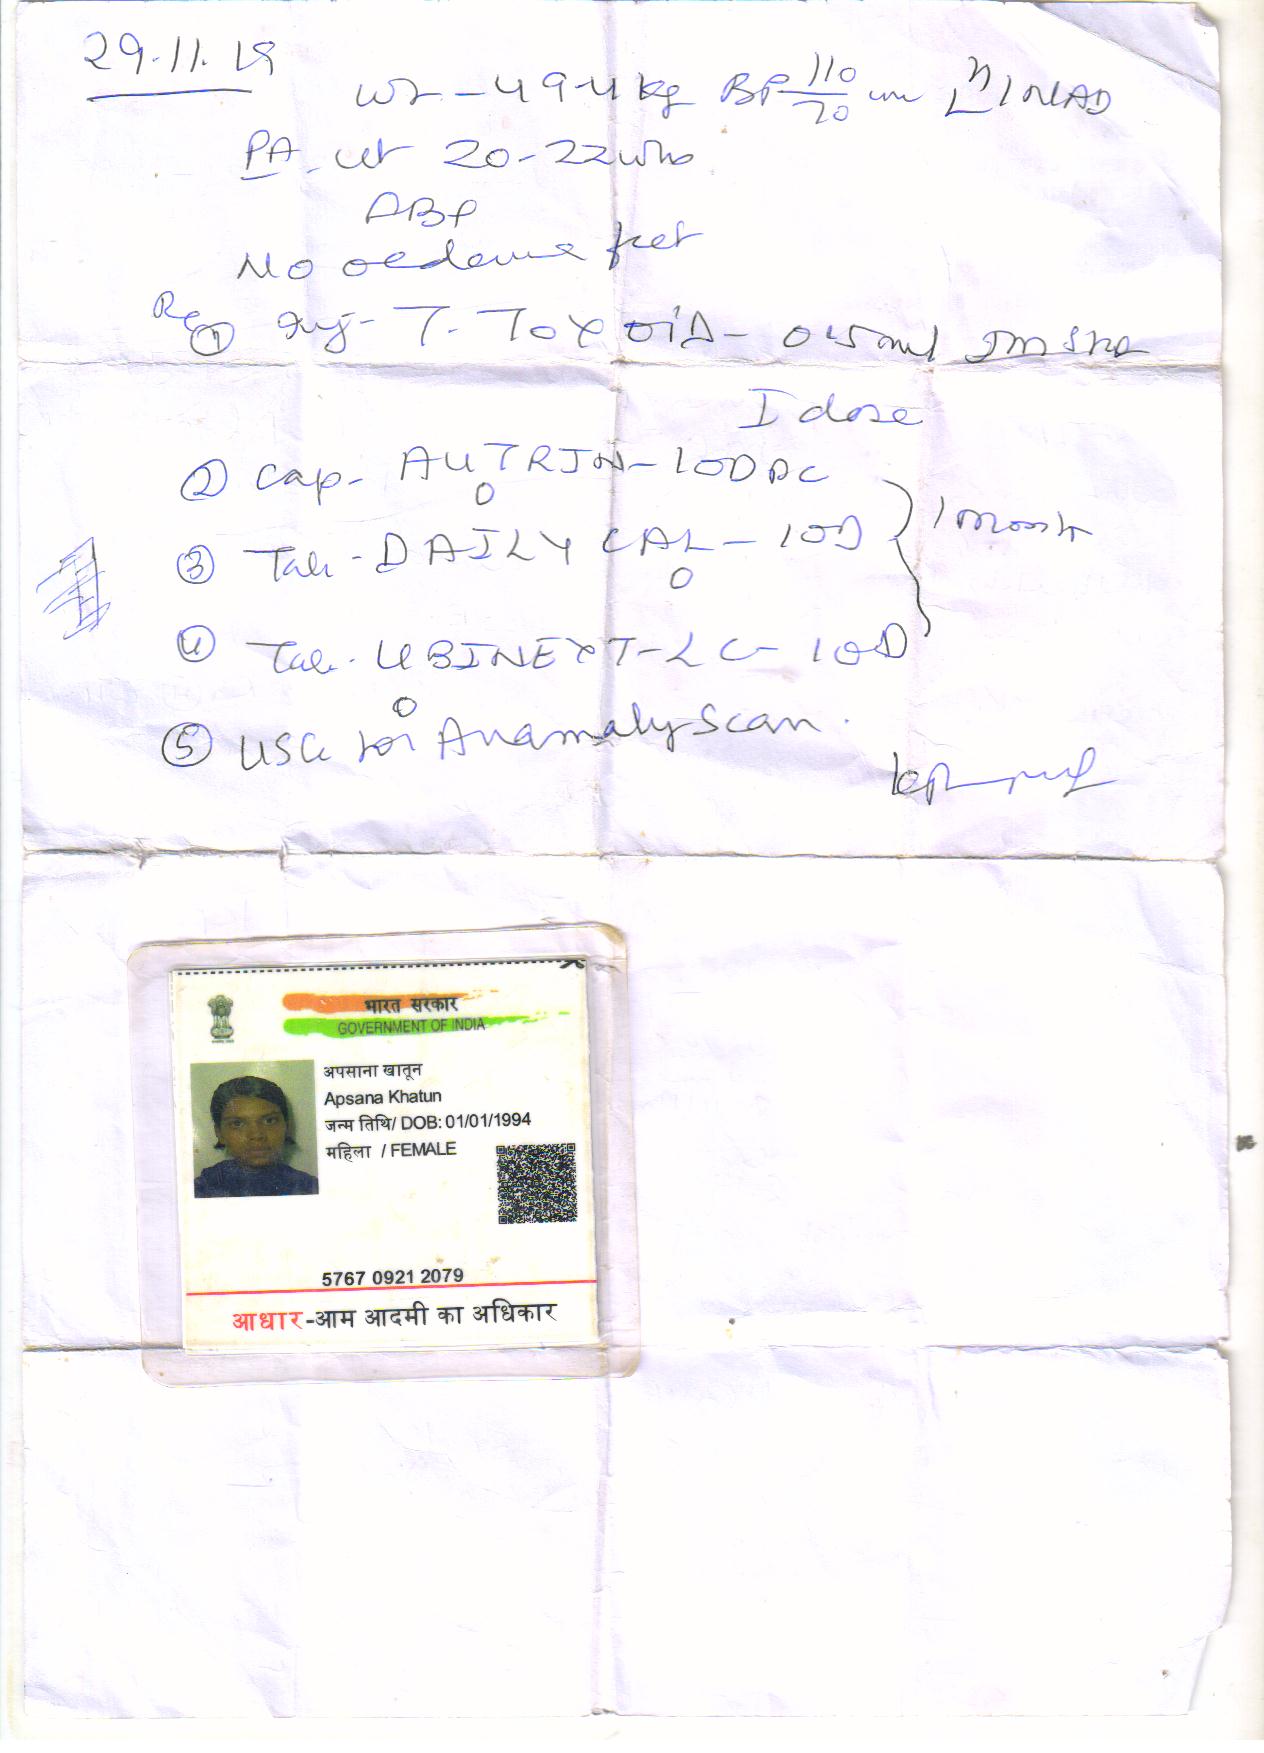 29.11.19
Wt - 49.4 kg BP 110/70 mm NAD
PA ut 20-22 wks
ABP
No oedema feet
Rx ① Inj- T. TOXOID - 0.5ml IM Stat
I dose
② Cap- AUTRIN - 1 OD PC
③ Tab - DAILY CAL - 1 OD
1 month
④ Tab - UBINEXT-LC - 1 OD
⑤ USG for Anamaly scan.
भारत सरकार
GOVERNMENT OF INDIA
अपसाना खातून
Apsana Khatun
जन्म तिथि/ DOB: 01/01/1994
महिला / FEMALE
5767 0921 2079
आधार-आम आदमी का अधिकार